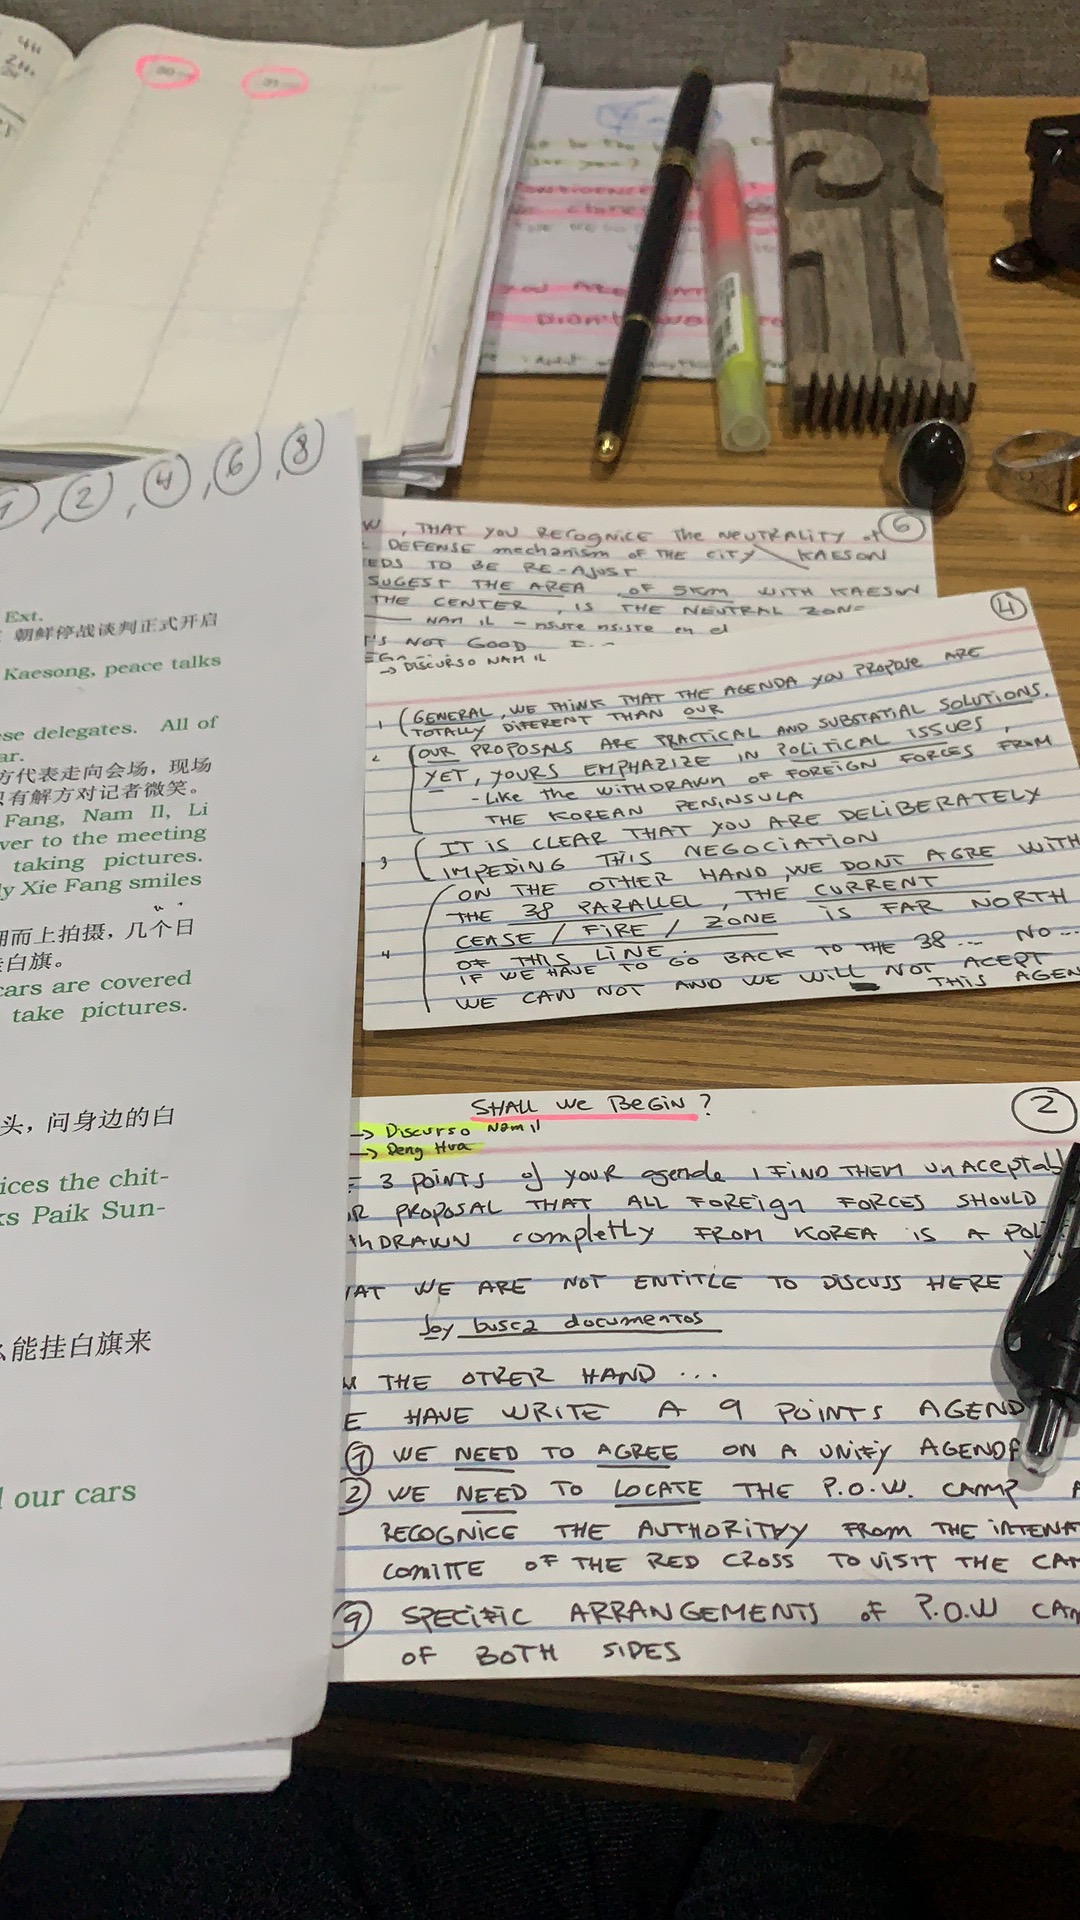 20
21
YOU ARE
DIDN'T
1, 2, 4, 6, 8
Ext.
朝鲜停战谈判正式开启
Kaesong, peace talks
se delegates. All of
ar.
方代表走向会场，现场
只有解方对记者微笑。
Fang, Nam Il, Li
ver to the meeting
taking pictures.
ly Xie Fang smiles
拥而上拍摄，几个日
挂白旗。
cars are covered
take pictures.
头，问身边的白
ices the chit-
ks Paik Sun-
么能挂白旗来
our cars
6
W, THAT YOU RECOGNICE THE NEUTRALITY of
DEFENSE mechanism OF THE CITY KAESON
EDS TO BE RE-AJUST
SUGEST THE AREA OF 5KM WITH KAESON
THE CENTER, IS THE NEUTRAL ZONE
NAM IL - insiste en el
T'S NOT GOOD
→ DISCURSO NAM IL
4
1 GENERAL, WE THINK THAT THE AGENDA YOU PROPOSE ARE
TOTALLY DIFERENT THAN OUR
2 OUR PROPOSALS ARE PRACTICAL AND SUBSTATIAL SOLUTIONS.
YET, YOURS EMPHAZIZE IN POLITICAL ISSUES,
- Like the WITHDRAWN OF FOREIGN FORCES FROM
THE KOREAN PENINSULA
3 IT IS CLEAR THAT YOU ARE DELIBERATELY
IMPEDING THIS NEGOCIATION
ON THE OTHER HAND, WE DONT AGRE WITH
THE 38 PARALLEL, THE CURRENT
CEASE / FIRE / ZONE IS FAR NORTH
4 OF THIS LINE.
IF WE HAVE TO GO BACK TO THE 38... NO...
WE CAN NOT AND WE WILL NOT ACEPT THIS AGEN
2
SHALL WE BEGIN?
→ Discurso Nam il
→ Deng Hua
3 POINTS of YOUR agenda, I FIND THEM UNACEPTABL
R PROPOSAL THAT ALL FOREIGN FORCES SHOULD
THDRAWN COMPLETLY FROM KOREA IS A POLI
AT WE ARE NOT ENTITLE TO DISCUSS HERE
Joy busca documentos
THE OTRER HAND ...
E HAVE WRITE A 9 POINTS AGEND
1 WE NEED TO AGREE ON A UNIFY AGENDA
2 WE NEED TO LOCATE THE P.O.W. CAMP A
RECOGNICE THE AUTHORITHY FROM THE INTENAT
COMITTE OF THE RED CROSS TO VISIT THE CAM
9 SPECIFIC ARRANGEMENTS OF P.O.W CAM
OF BOTH SIDES